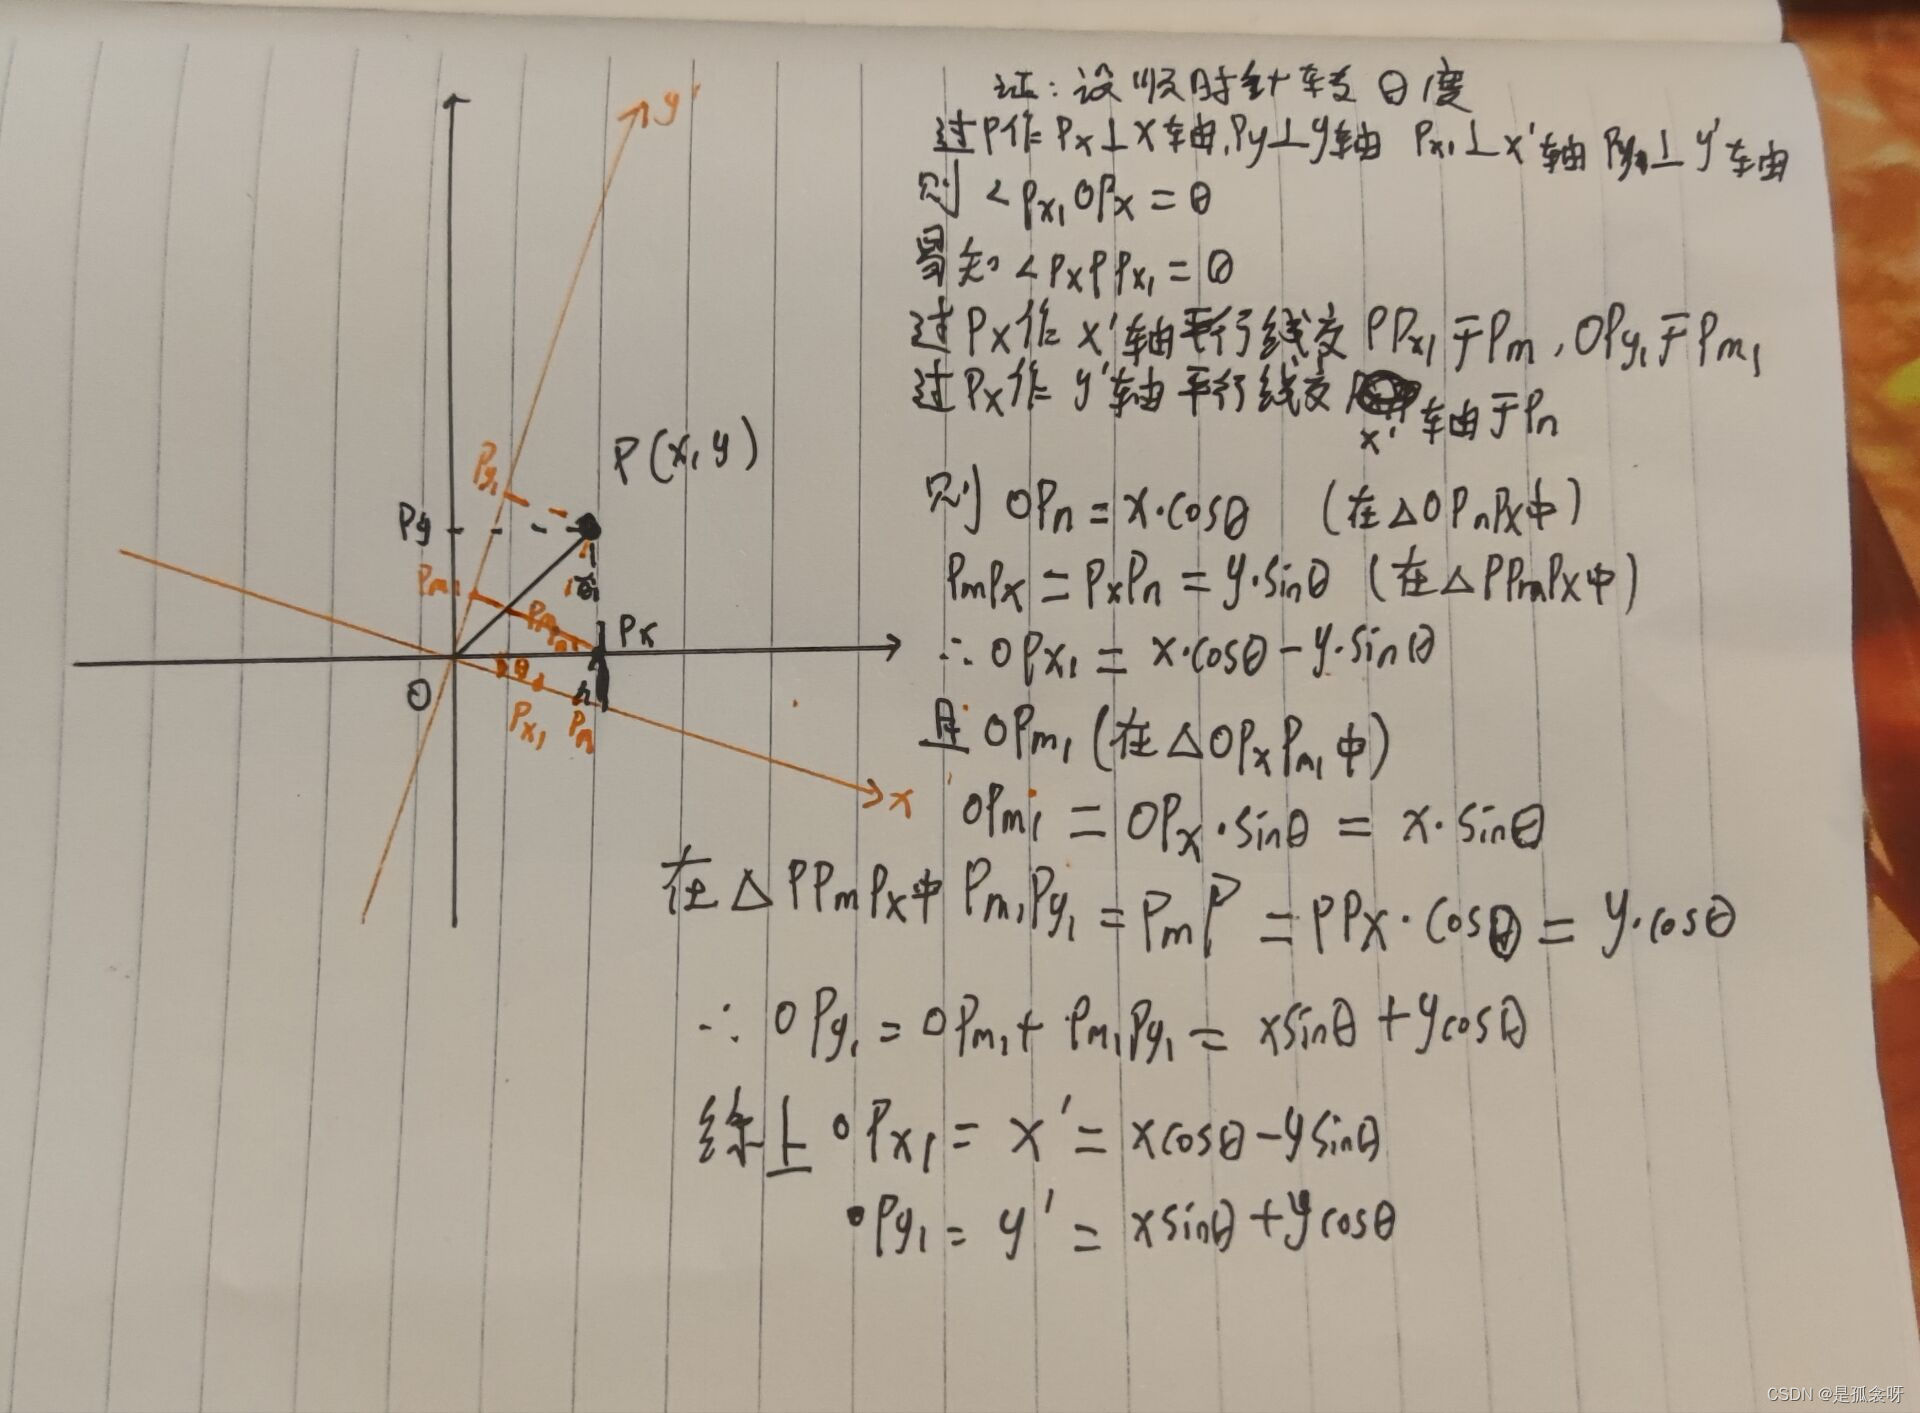 证：设顺时针转θ度
过P作Px⊥x轴,Py⊥y轴 Px₁⊥x'轴 Py₁⊥y'轴
则 <Px₁OPx = θ
易知 <PxPPx₁ = θ
过Px作x'轴平行线交PPx₁于Pm,OPy₁于Pm₁
过Px作y'轴平行线交
x'轴于Pn
则 OPn = x·cosθ (在△OPnPx中)
PmPx = PxPn = y·sinθ (在△PPmPx中)
∴ OPx₁ = x·cosθ-y·sinθ
且OPm₁(在△OPxPm₁中)
OPm₁ = OPx·sinθ = x·sinθ
在△PPmPx中 Pm₁Py₁ = PmP = PPx·cosθ = y·cosθ
∴ OPy₁ = OPm₁ + Pm₁Py₁ = xsinθ + ycosθ
综上 OPx₁ = x' = xcosθ-ysinθ
OPy₁ = y' = xsinθ + ycosθ
y'
P(x,y)
Py₁
Py
θ
Pm₁
Pm
Px
O
θ
Px₁
Pn
x'
CSDN @是孤衾呀